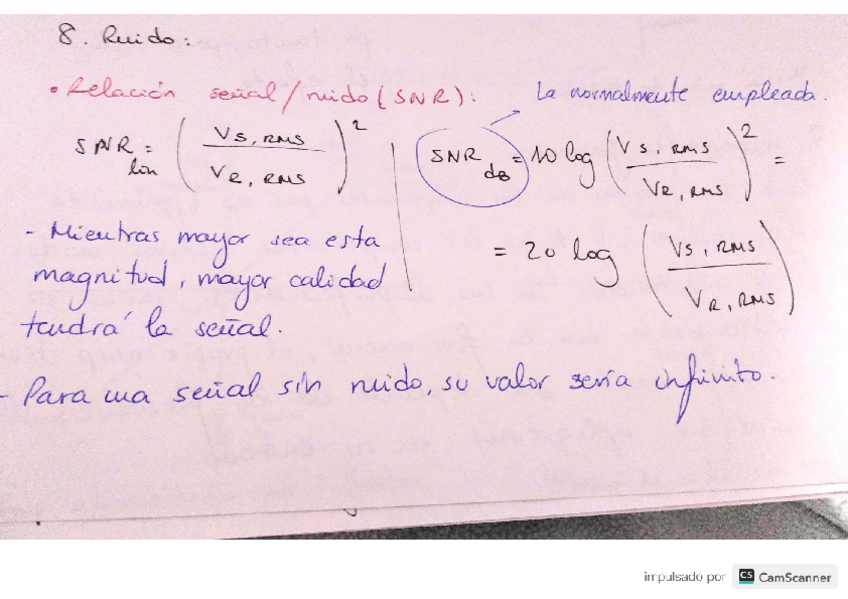 8. Ruido:
• Relación señal/ruido (SNR): La normalmente empleada.
SNR lin = (VS,RMS / VR,RMS)^2
SNR dB = 10 log (VS,RMS / VR,RMS)^2 =
= 20 log (VS,RMS / VR,RMS)
- Mientras mayor sea esta
magnitud, mayor calidad
tendrá la señal.
- Para una señal sin ruido, su valor sería infinito.
impulsado por CS CamScanner